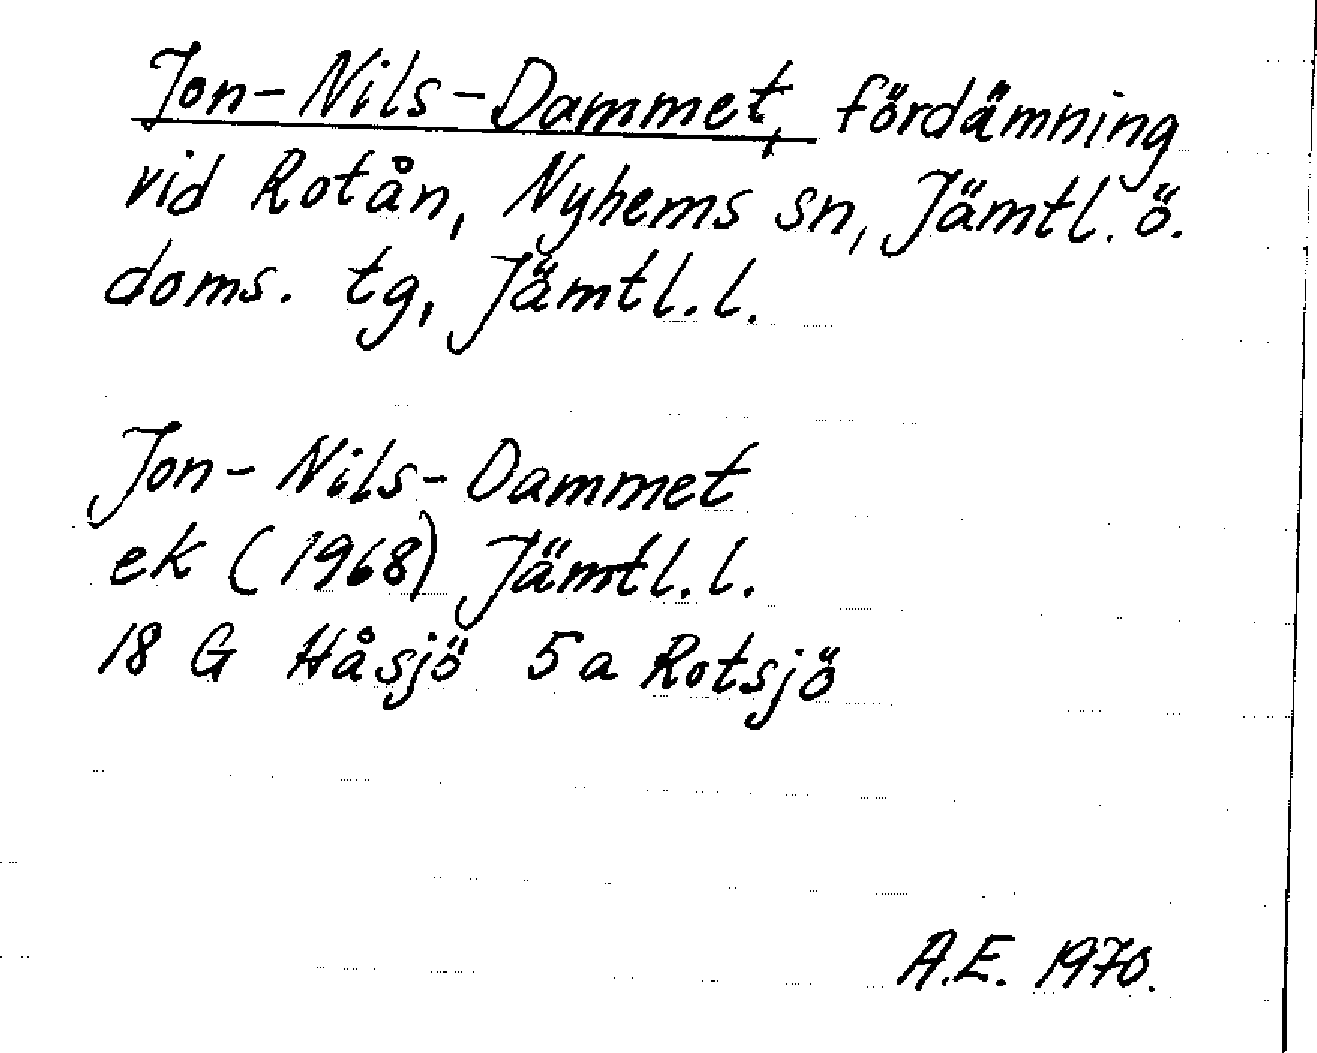 Jon-Nils-Dammet, fördämning
vid Rotån, Nyhems sn, Jämtl. ö.
doms. tg, Jämtl. l.
Jon-Nils-Dammet
ek (1968) Jämtl. l.
18 G Håsjö 5a Rotsjö
A.E. 1970.